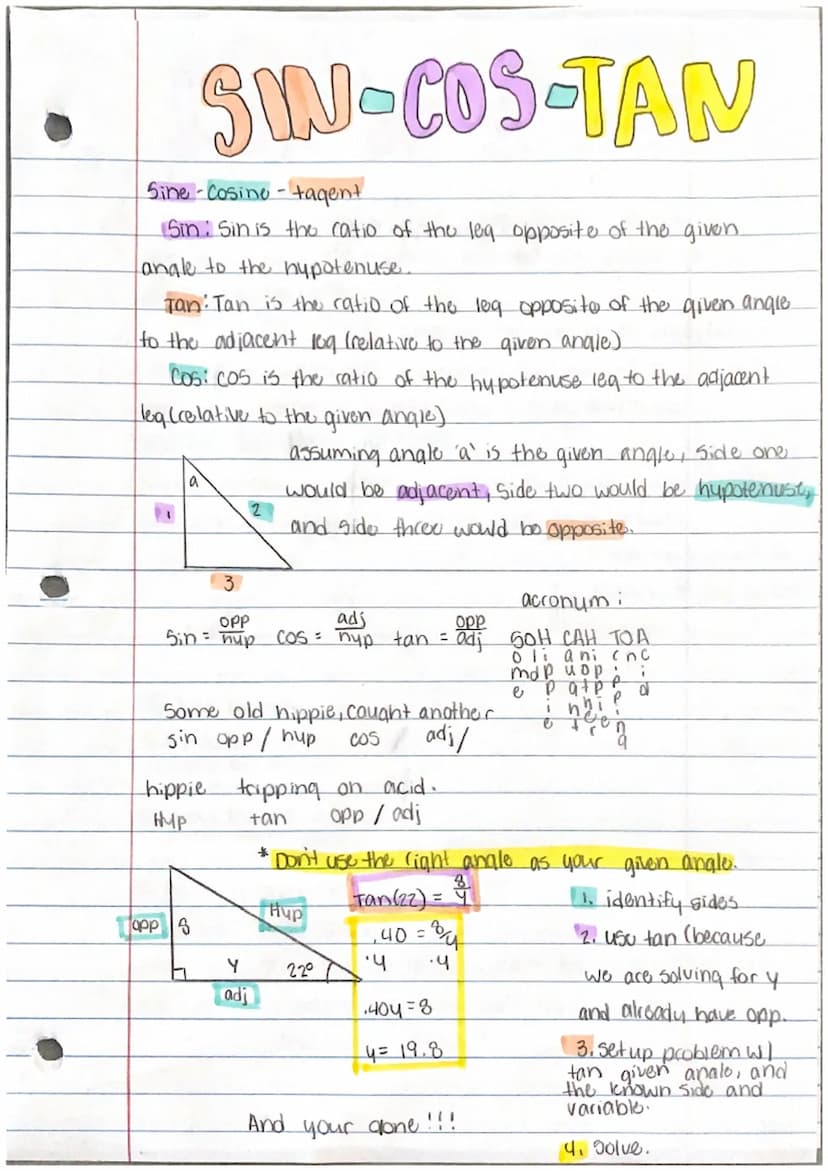 SIN-COS-TAN
Sine - Cosine - tagent
Sin: Sin is the ratio of the leg opposite of the given
angle to the hypotenuse.
Tan: Tan is the ratio of the leg opposite of the given angle
to the adjacent leg (relative to the given angle)
Cos: cos is the ratio of the hypotenuse leg to the adjacent
leg (relative to the given angle)
assuming angle 'a' is the given angle, side one
would be adjacent, side two would be hypotenuse,
and side three would be opposite.
a
1
2
3
acronym:
Sin = opp/hyp cos = adj/hyp tan = opp/adj
SOH CAH TOA
Some old hippie, caught another
sin opp / hyp cos adj/
hippie tripping on acid.
Hyp tan opp / adj
* Don't use the right angle as your given angle.
opp 8 Hyp
y 22°
adj
Tan(22) = 8/y
.40 = 8/y
·y ·y
.40y = 8
y = 19.8
1. identify sides
2. use tan (because
we are solving for y
and already have opp.
3. set up problem w/
tan given angle, and
the known side and
variable.
4. Solve.
And your done!!!